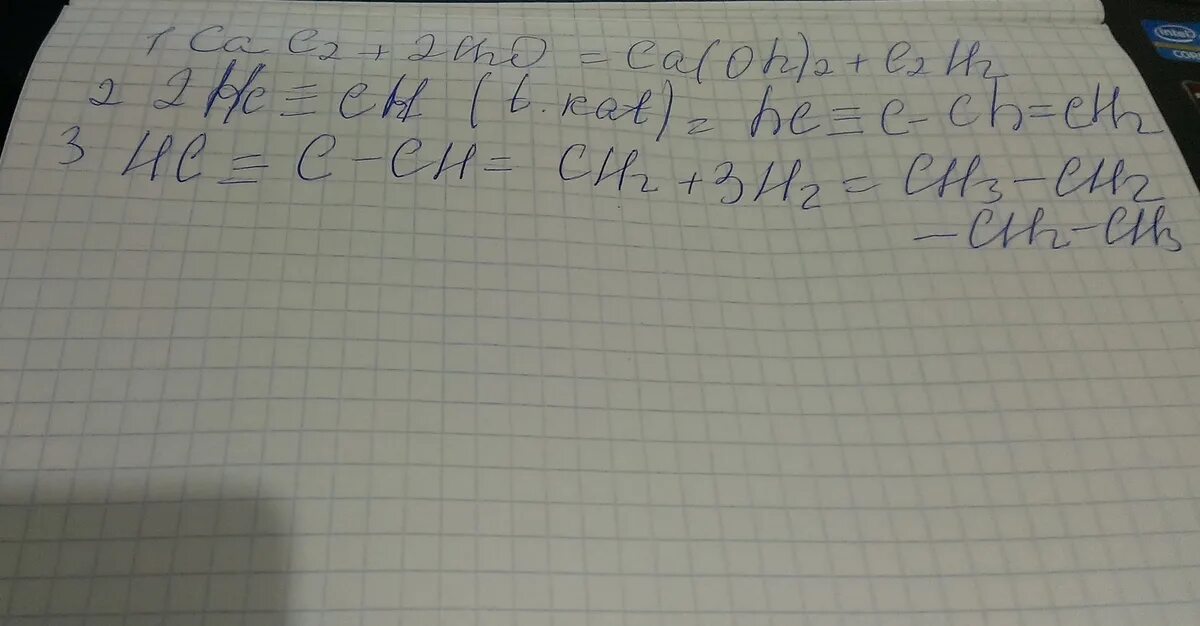 1 CaC₂ + 2h₂O = Ca(Oh)₂ + C₂H₂
2 2Hc≡CH (t. kat) = hC≡C-Ch=CH₂
3 HC≡C-CH=CH₂ + 3H₂ = CH₃-CH₂
-CH₂-CH₃
intel